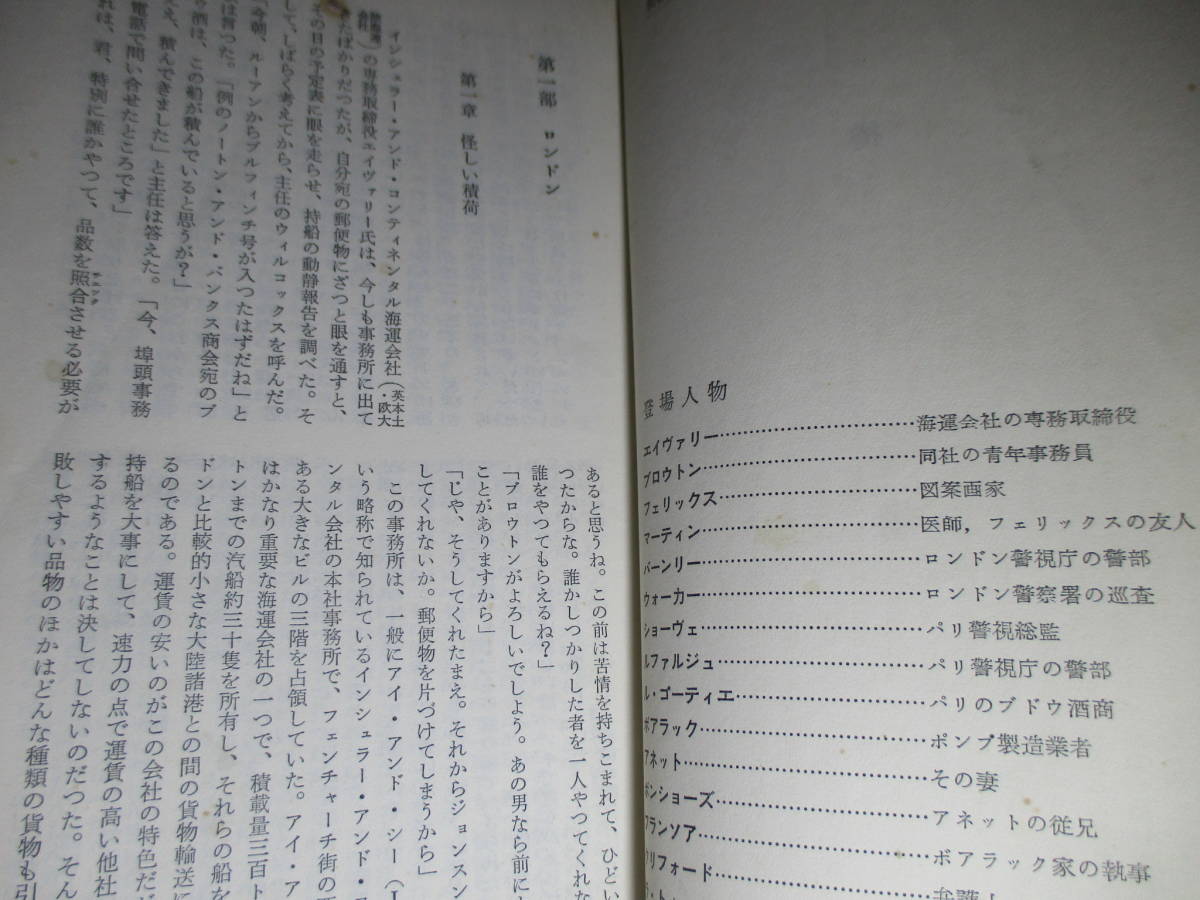 登場人物
エイヴァリー……海運会社の専務取締役
ブロウトン……同社の青年事務員
フェリックス……図案画家
マーティン……医師，フェリックスの友人
バーンリー……ロンドン警視庁の警部
ウォーカー……ロンドン警察署の巡査
ショーヴェ……パリ警視総監
ルファルジュ……パリ警視庁の警部
ル・ゴーティエ……パリのブドウ酒商
ボアラック……ポンプ製造業者
アネット……その妻
ボンショーズ……アネットの従兄
フランソア……ボアラック家の執事
クリフォード……弁護士
第一部　ロンドン
第一章　怪しい積荷
インシュラー・アンド・コンティネンタル海運会社（英本土・欧大
会社）の専務取締役エイヴァリー氏は、今しも事務所に出て
きたばかりだつたが、自分宛の郵便物にざつと眼を通すと、
その日の予定表に眼を走らせ、持船の動静報告を調べた。そ
して、しばらく考えてから、主任のウィルコックスを呼んだ。
「今朝、ルーアンからブルフィンチ号が入つたはずだね」と
は言つた。「例のノートン・アンド・バンクス商会宛のブ
う酒は、この船が積んでいると思うが？」
え、積んできました」と主任は答えた。「今、埠頭事務
電話で問い合せたところです」
れは、君、特別に誰かやつて、品数を照合させる必要が
あると思うね。この前は苦情を持ちこまれて、ひどい
つたからな。誰かしつかりした者を一人やつてくれな
誰をやつてもらえるね？」
「ブロウトンがよろしいでしよう。あの男なら前に
ことがありますから」
「じや、そうしてくれたまえ。それからジョンスン
してくれないか。郵便物を片づけてしまうから」
この事務所は、一般にアイ・アンド・シー（I
いう略称で知られているインシュラー・アンド・コ
ンタル会社の本社事務所で、フェンチャーチ街の西
ある大きなビルの三階を占領していた。アイ・ア
はかなり重要な海運会社の一つで、積載量三百ト
トンまでの汽船約三十隻を所有し、それらの船を
ドンと比較的小さな大陸諸港との間の貨物輸送に
るのである。運賃の安いのがこの会社の特色だ
持船を大事にして、速力の点で運賃の高い他社
するようなことは決してしないのだつた。そん
敗しやすい品物のほかはどんな種類の貨物も引